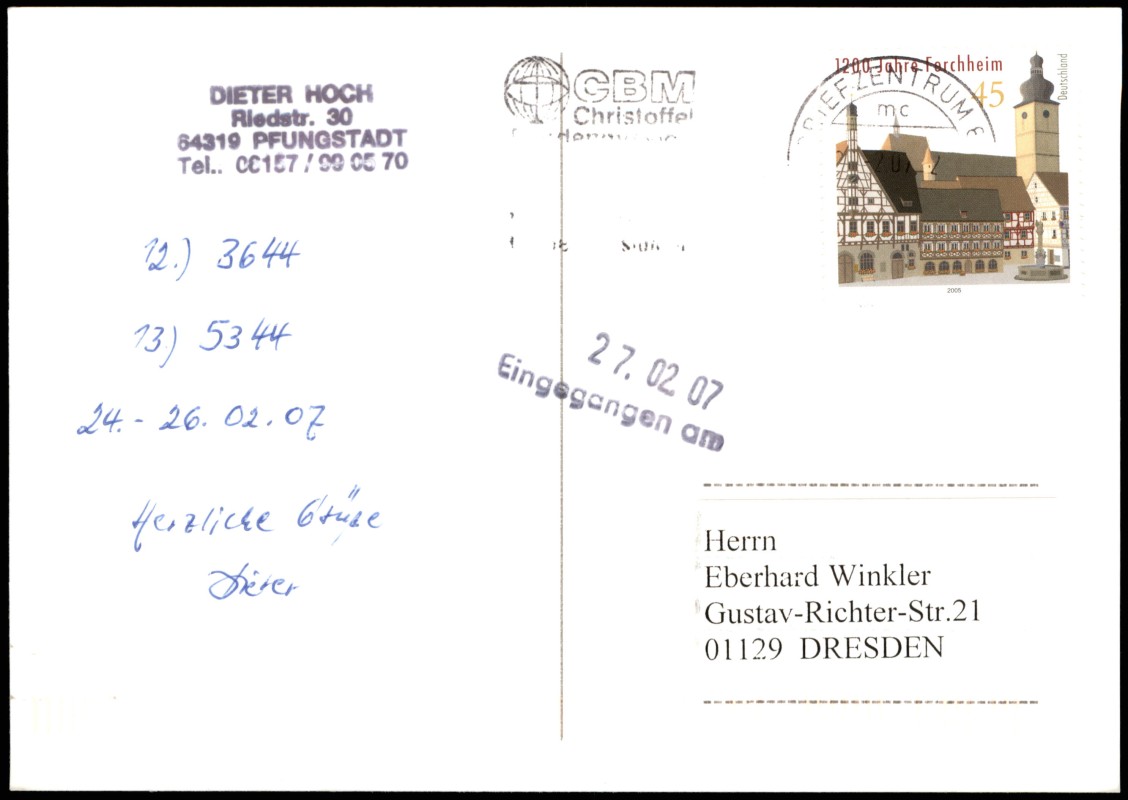 DIETER HOCH
Riedstr. 30
64319 PFUNGSTADT
Tel..
12.) 3644
13) 5344
24.- 26. 02. 07
Herzliche Grüße
Dieter
CBM
Christoffel
BRIEFZENTRUM
mc
1200 Jahre Forchheim
45
Deutschland
2005
27. 02. 07
Eingegangen am
Herrn
Eberhard Winkler
Gustav-Richter-Str.21
01129 DRESDEN